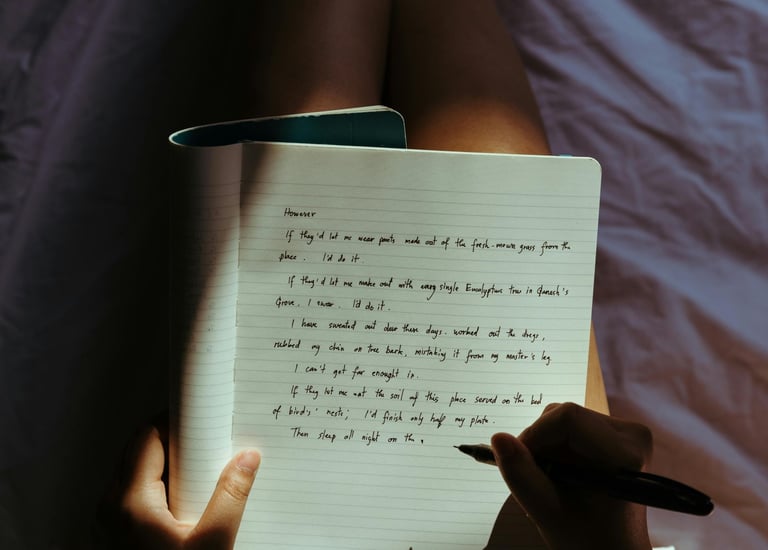 However
If they'd let me wear pants made out of the fresh-mown grass from the
place. I'd do it.
If they'd let me make out with every single Eucalyptus tree in Ganach's
Grove, I swear. I'd do it.
I have sweated out dew these days. worked out the dregs,
rubbed my chin on tree bark, mistaking it from my master's leg
I can't get far enought in.
If they let me eat the soil of this place served on the bed
of bird's' nests; I'd finish only half my plate.
Then sleep all night on the